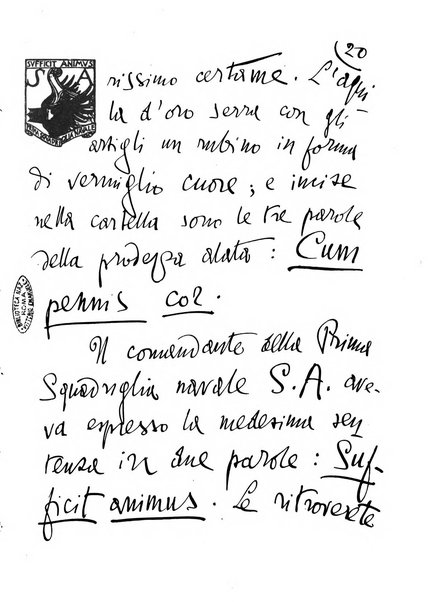 20
SVFFICIT ANIMVS
S A
rissimo certame. L'aqui
la d'oro serra con gli
artigli un rubino in forma
di vermiglio cuore; e incise
nella cartella sono le tre parole
della prodezza alata: Cum
pennis cor.
Il comandante della Prima
Squadriglia navale S.A. ave-
va espresso la medesima sen
tenza in due parole: Suf-
ficit animus. Le ritroverete